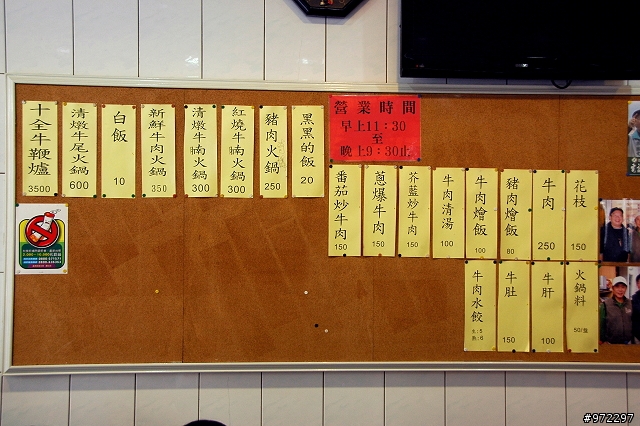 十全牛鞭爐 3500
清燉牛尾火鍋 600
白飯 10
新鮮牛肉火鍋 350
清燉牛腩火鍋 300
紅燒牛腩火鍋 300
豬肉火鍋 250
黑黑的飯 20
營業時間
早上11:30
至
晚上9:30止
番茄炒牛肉 150
蔥爆牛肉 150
芥藍炒牛肉 150
牛肉清湯 100
牛肉燴飯 100
豬肉燴飯 80
牛肉 250
花枝 150
牛肉水餃
生:5
熟:6
牛肚 150
牛肝 100
火鍋料 50/盤
#972297